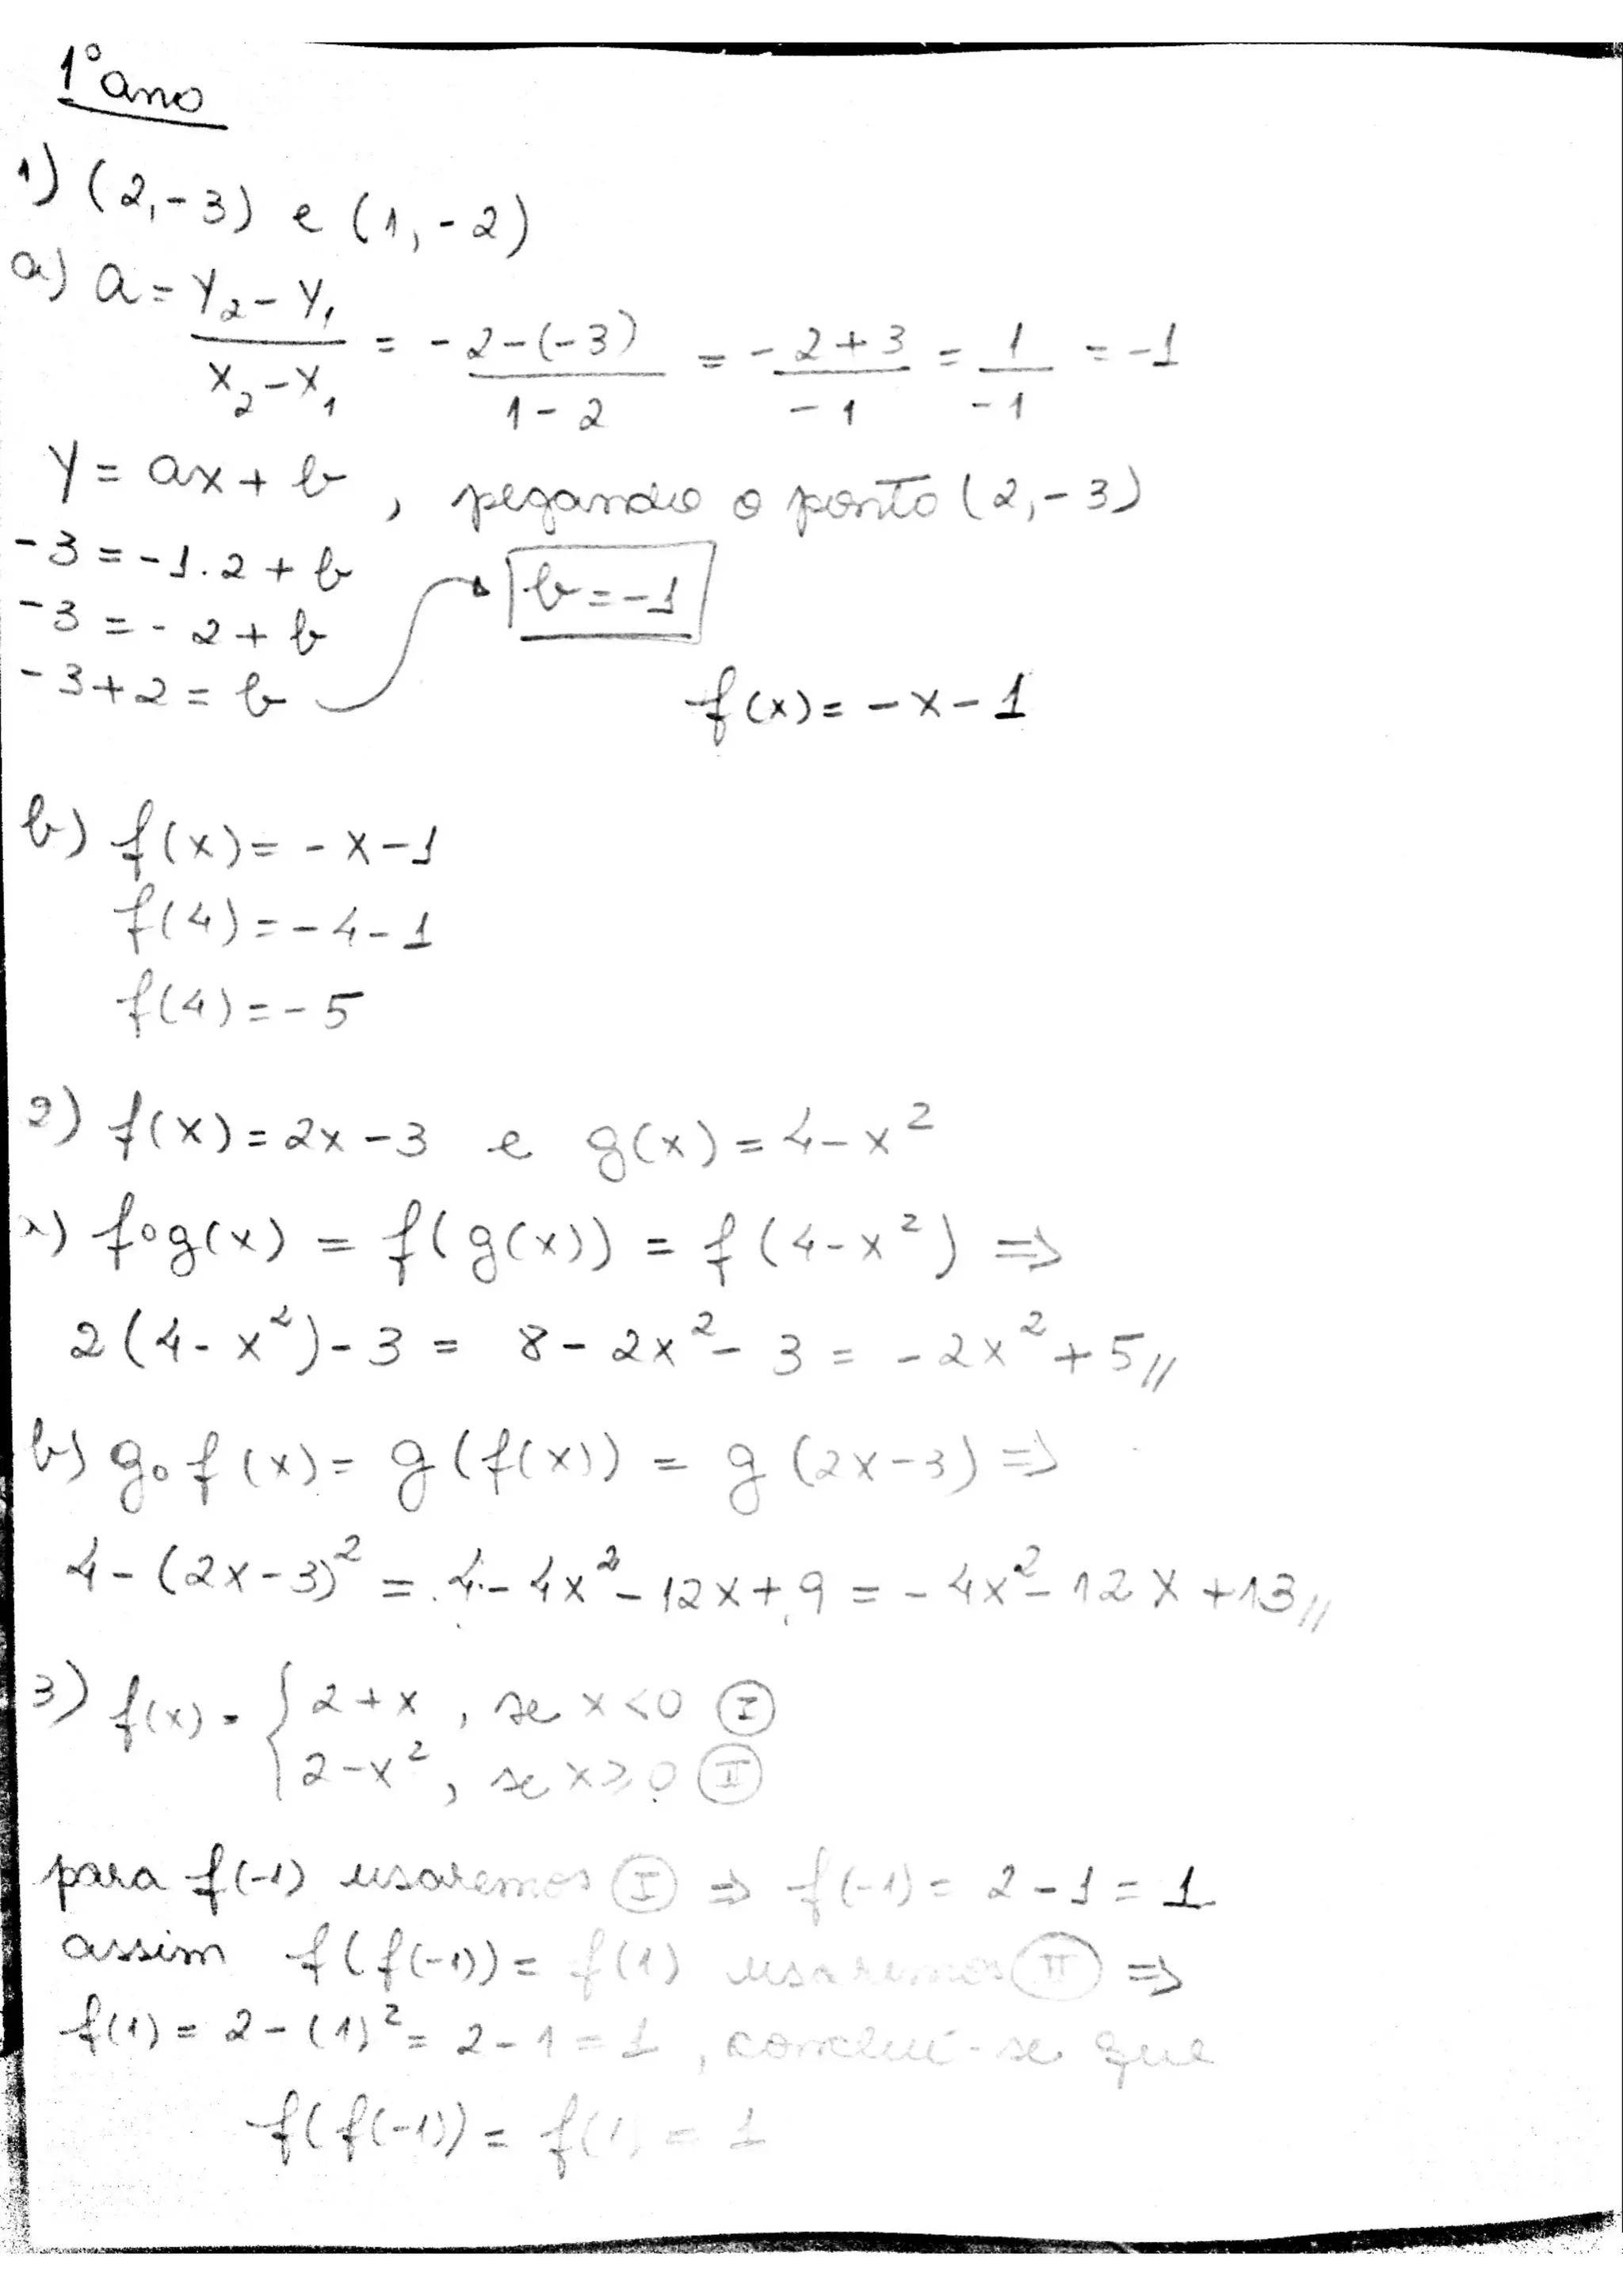 1º ano
1) (2,-3) e (1,-2)
a) a = Y₂ - Y₁ / X₂ - X₁ = -2-(-3) / 1-2 = -2+3 / -1 = 1 / -1 = -1
Y = ax + b, pegando o ponto (2,-3)
-3 = -1.2 + b
b = -1
-3 = -2 + b
-3+2 = b
f(x) = -x-1
b) f(x) = -x-1
f(4) = -4-1
f(4) = -5
2) f(x) = 2x-3 e g(x) = 4-x²
a) fog(x) = f(g(x)) = f(4-x²) ⇒
2(4-x²)-3 = 8-2x²-3 = -2x²+5//
b) gof(x) = g(f(x)) = g(2x-3) ⇒
4-(2x-3)² = 4-4x²-12x+9 = -4x²-12x+13//
3) f(x) = { 2+x, se x<0 Ⓘ
2-x², se x≥0 Ⅱ
para f(-1) usaremos Ⓘ ⇒ f(-1) = 2-1 = 1
assim f(f(-1)) = f(1) usaremos Ⅱ ⇒
f(1) = 2-(1)² = 2-1 = 1, conclui-se que
f(f(-1)) = f(1) = 1